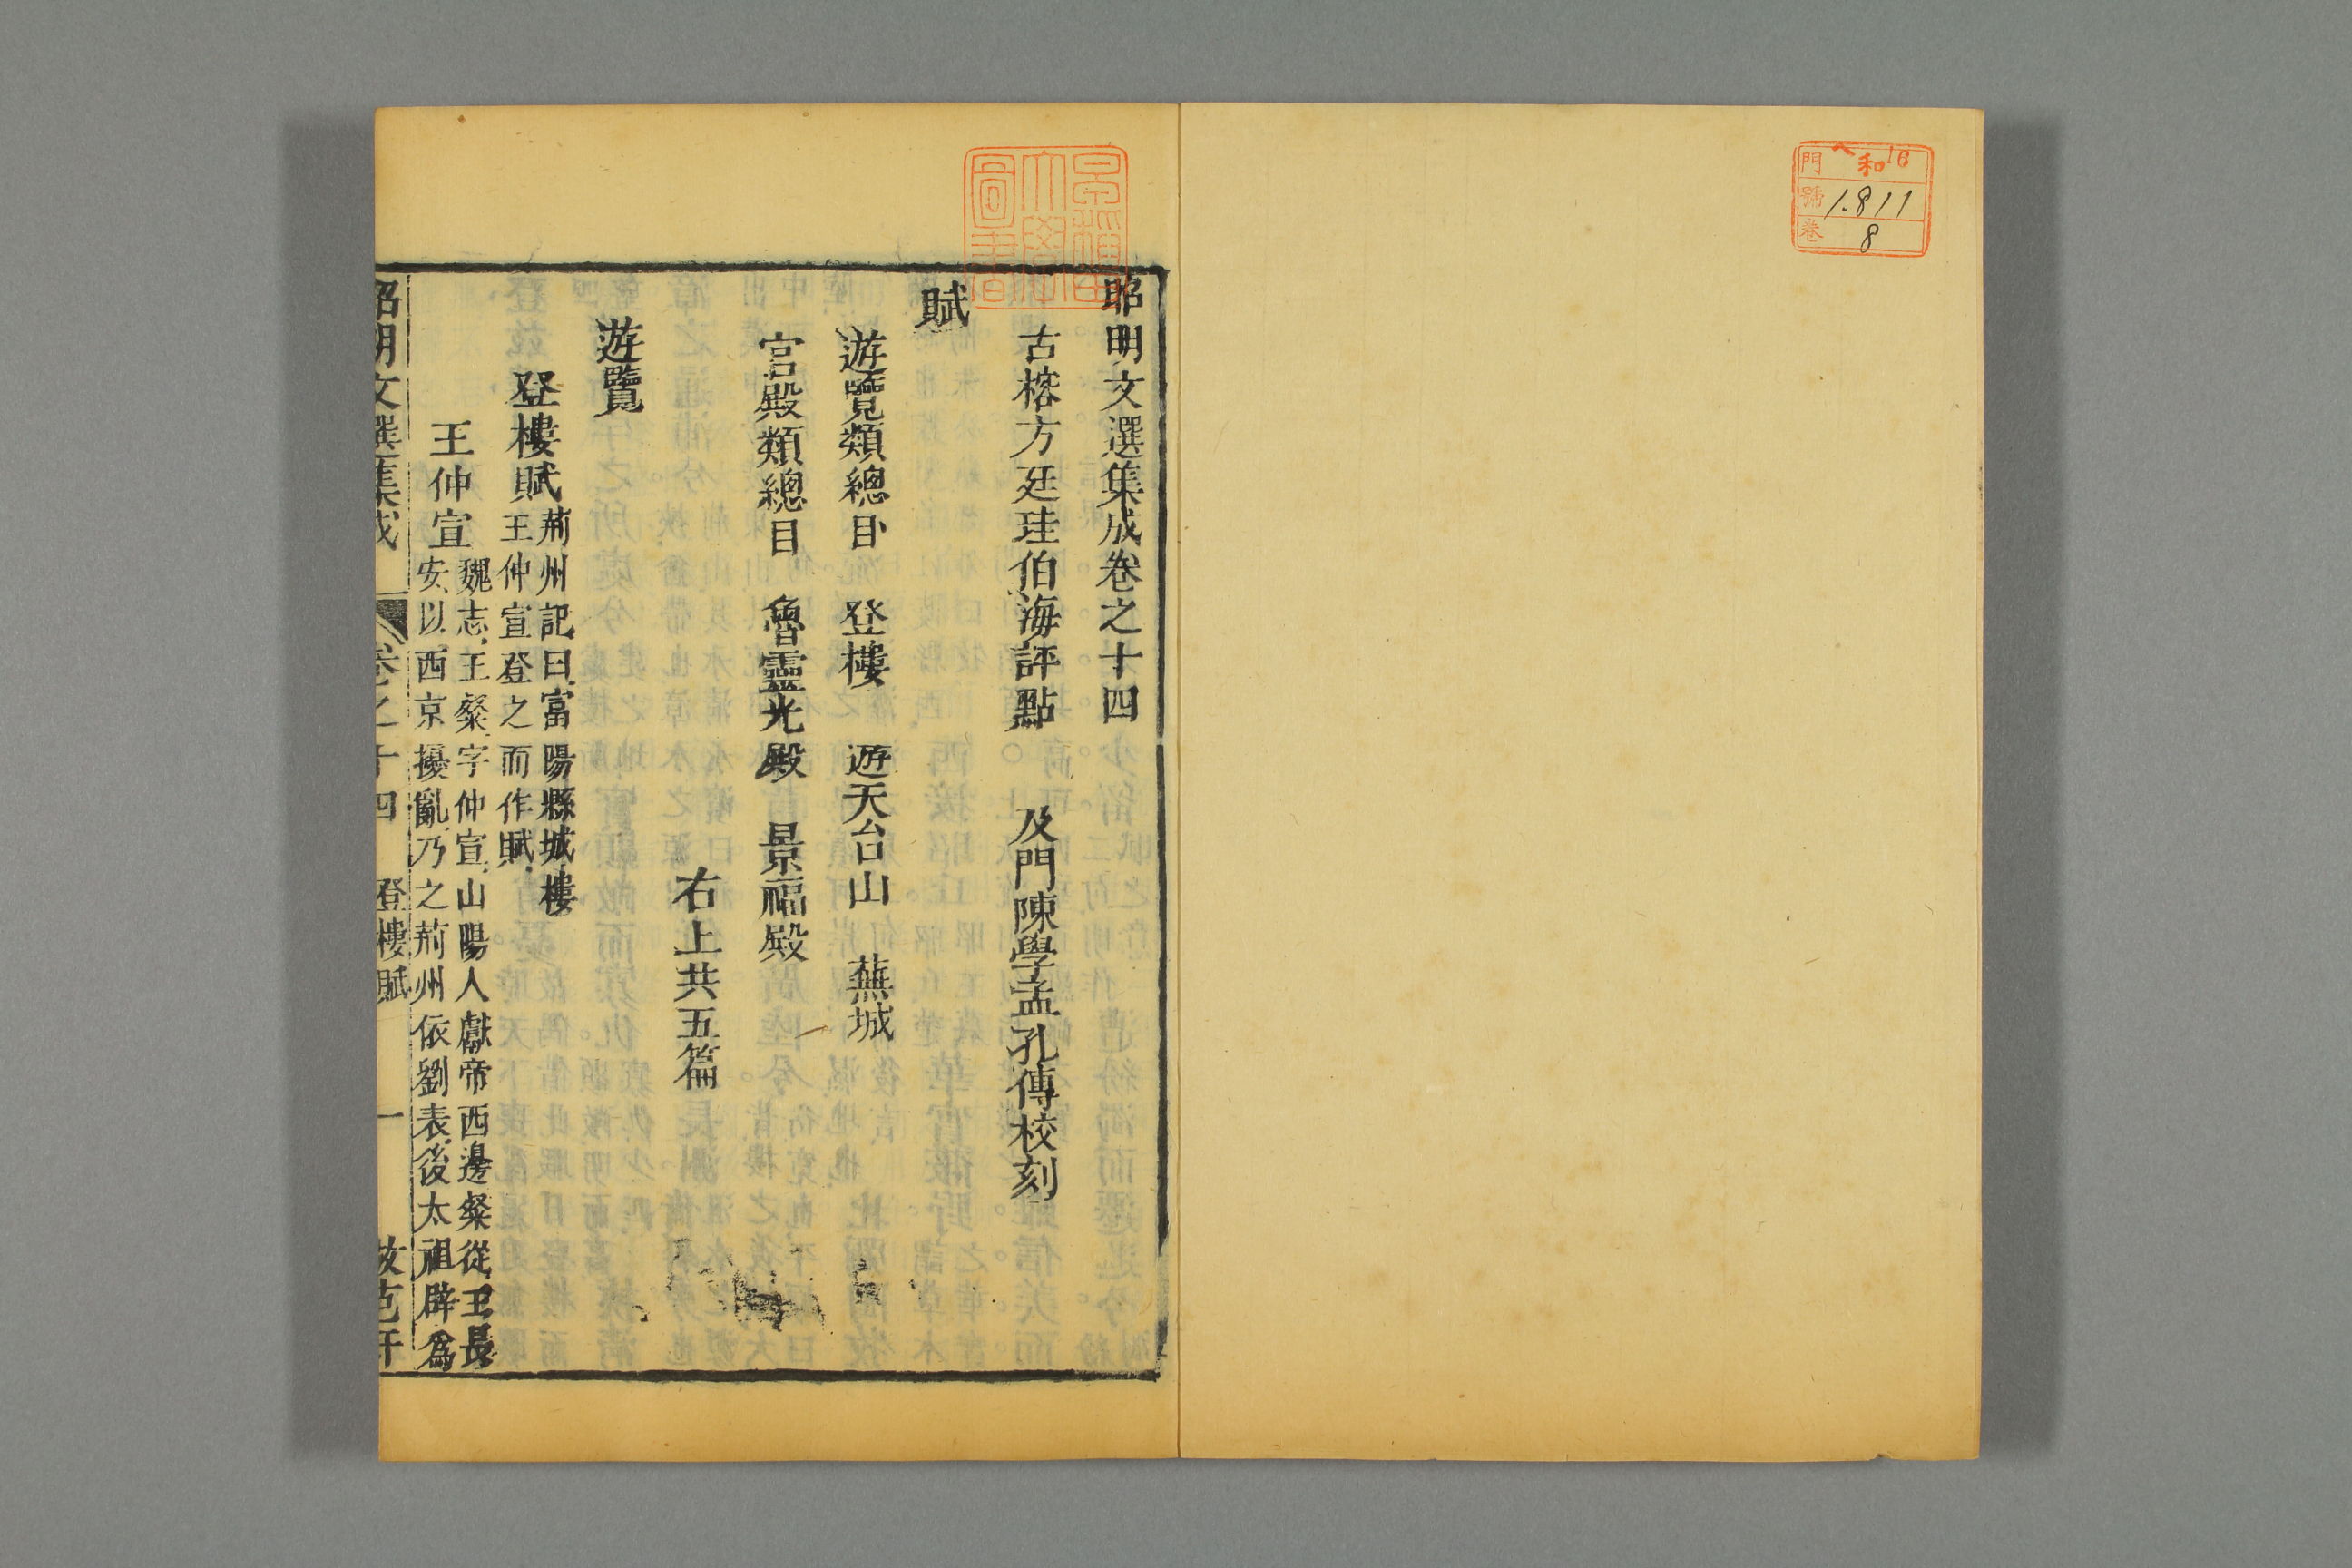 門 ヘ和16
號 1.811
卷 8
早稲田
大學
圖書
昭明文選集成卷之十四
古榕方廷珪伯海評點 及門陳學孟孔傳校刻
賦
遊覽類總目 登樓 遊天台山 蕪城
宮殿類總目 魯靈光殿 景福殿
右上共五篇
遊覽
登樓賦
荊州記曰富陽縣城樓
王仲宣登之而作賦
王仲宣
魏志王粲字仲宣山陽人獻帝西邊粲從王長
安以西京擾亂乃之荊州依劉表後太祖辟為
昭明文選集成 卷之十四 登樓賦 一